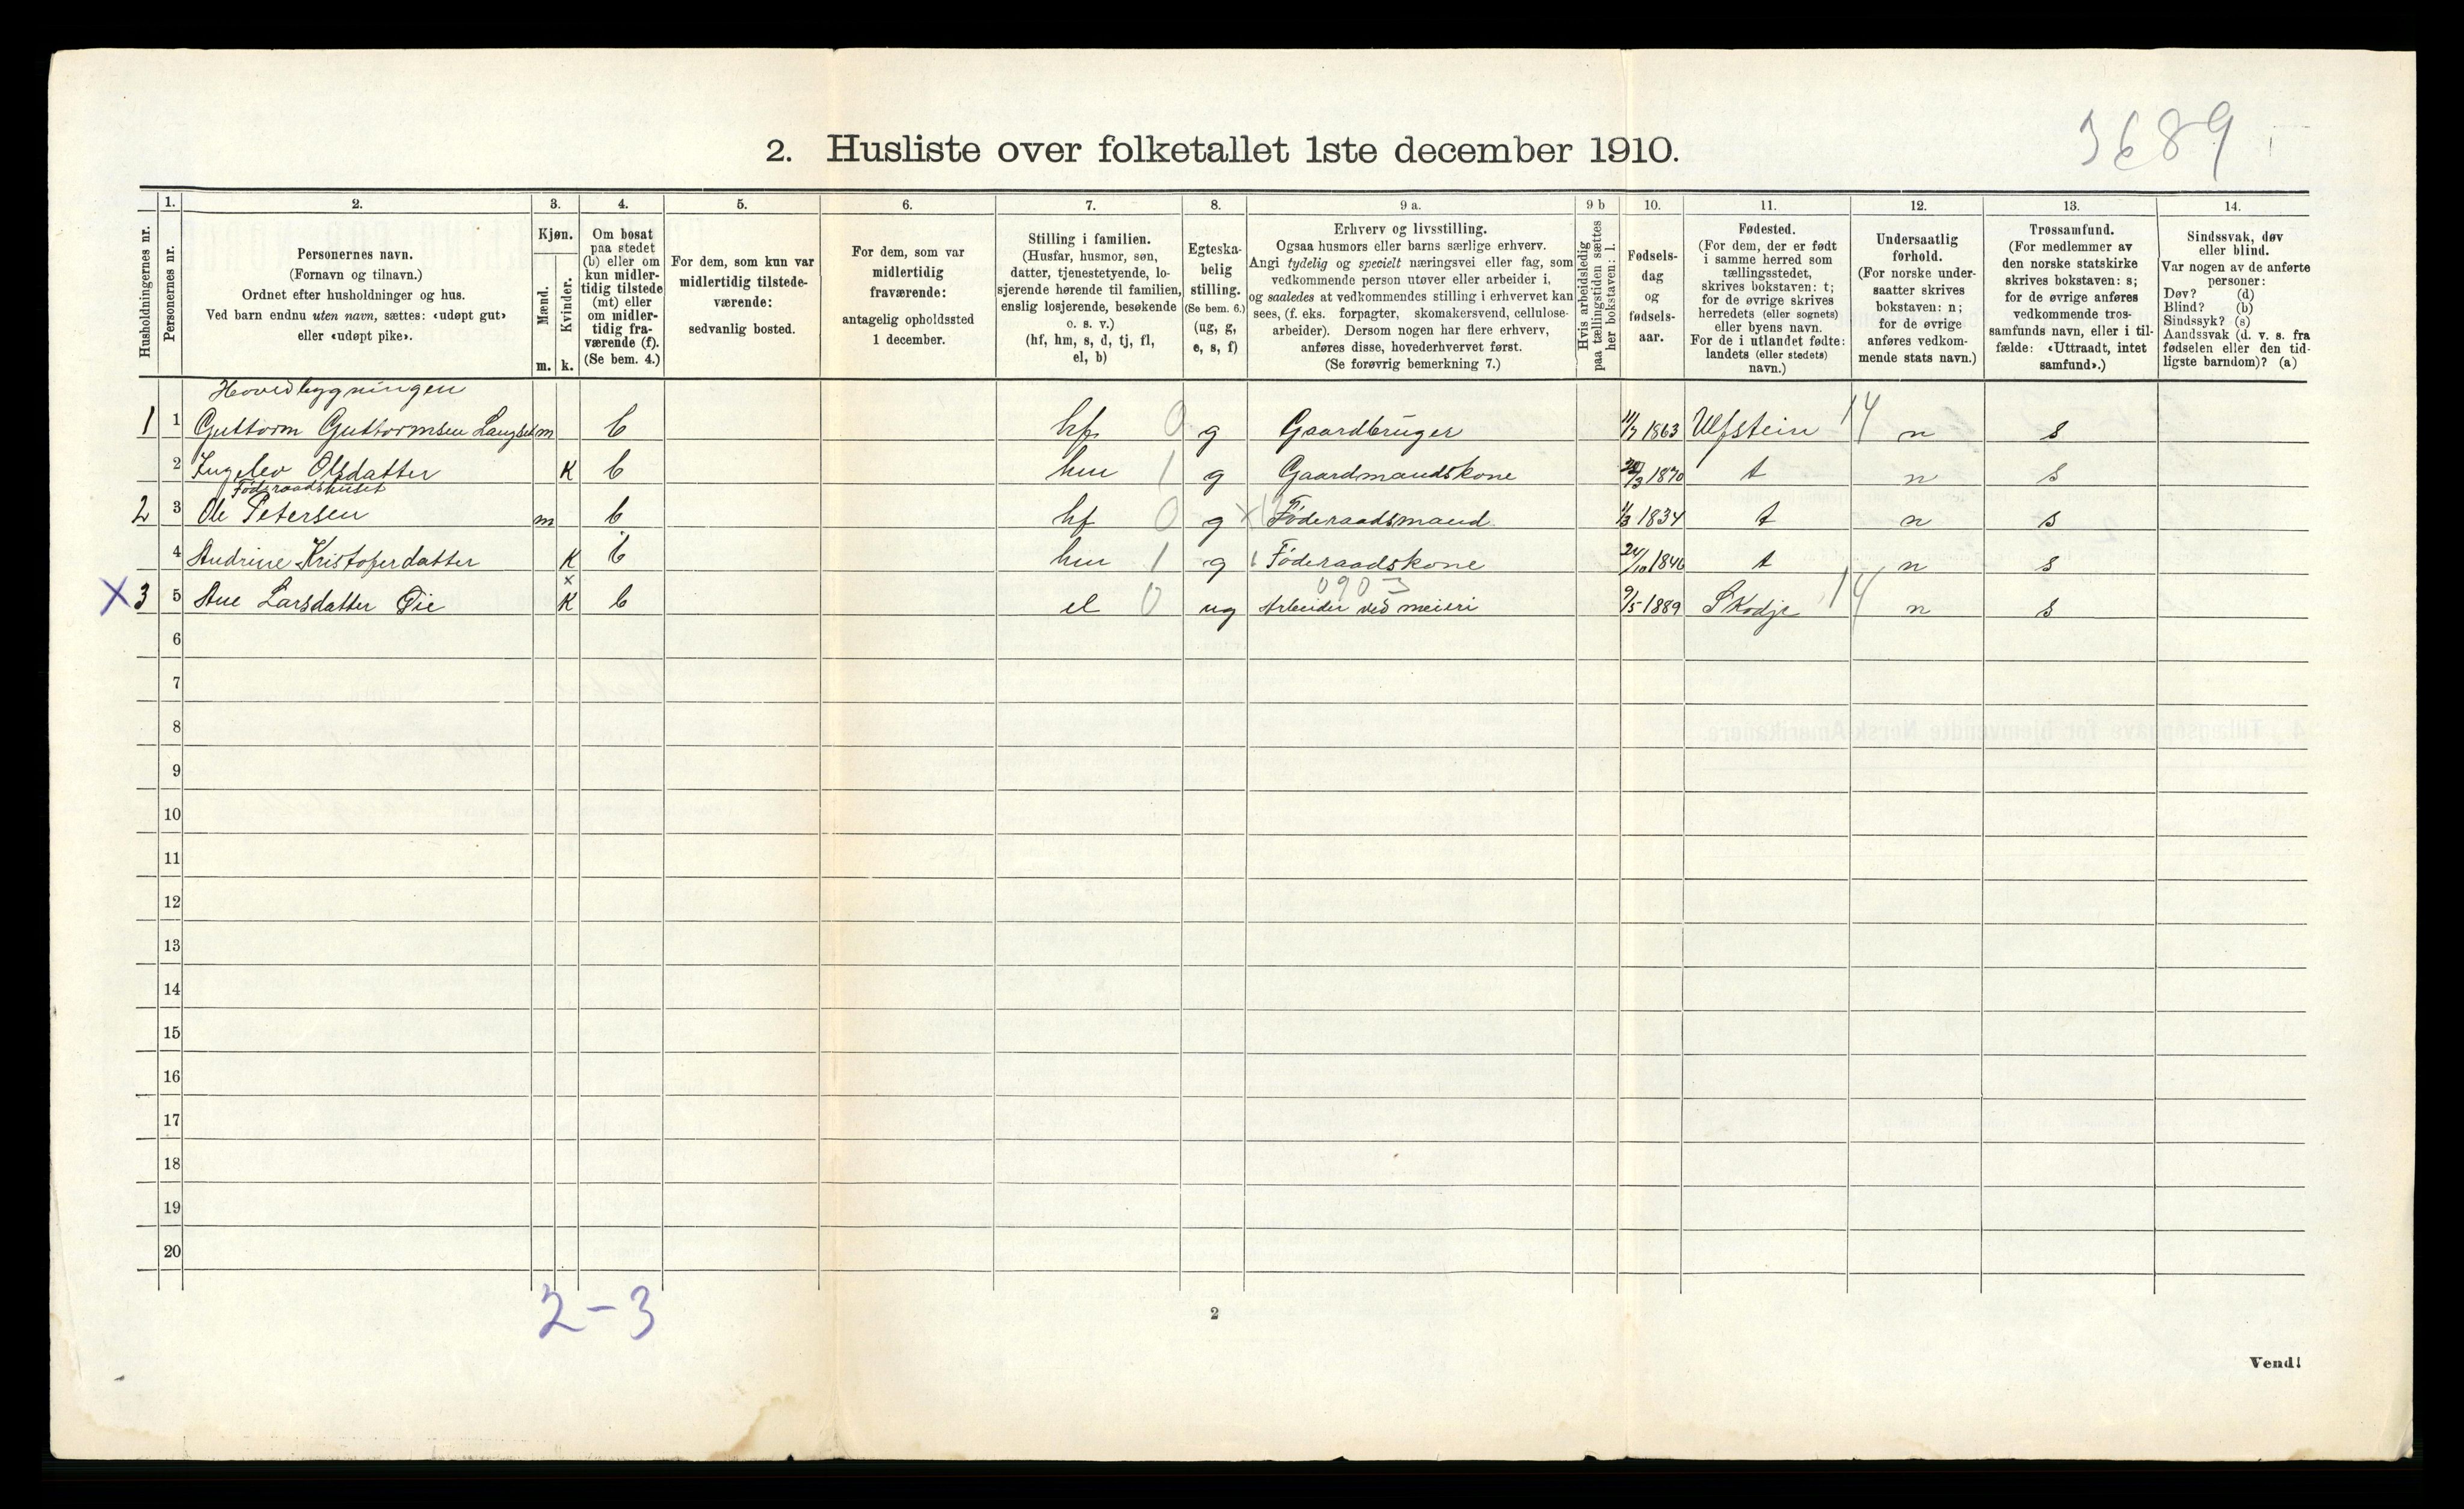 3689
2. Husliste over folketallet 1ste december 1910.
Husholdningernes nr.
1.
Personernes nr.
2.
Personernes navn.
(Fornavn og tilnavn.)
Ordnet efter husholdninger og hus.
Ved barn endnu uten navn, sættes: «udøpt gut»
eller «udøpt pike».
3.
Kjøn.
Mænd.
Kvinder.
m. k.
4.
Om bosat
paa stedet
(b) eller om
kun midler-
tidig tilstede
(mt) eller
om midler-
tidig fra-
værende (f).
(Se bem. 4.)
5.
For dem, som kun var
midlertidig tilstede-
værende:
sedvanlig bosted.
6.
For dem, som var
midlertidig
fraværende:
antagelig opholdssted
1 december.
7.
Stilling i familien.
(Husfar, husmor, søn,
datter, tjenestetyende, lo-
sjerende hørende til familien,
enslig losjerende, besøkende
o. s. v.)
(hf, hm, s, d, tj, fl,
el, b)
8.
Egteska-
belig
stilling.
(Se bem. 6.)
(ug, g,
e, s, f)
9 a.
Erhverv og livsstilling.
Ogsaa husmors eller barns særlige erhverv.
Angi tydelig og specielt næringsvei eller fag, som
vedkommende person utøver eller arbeider i,
og saaledes at vedkommendes stilling i erhvervet kan
sees, (f. eks. forpagter, skomakersvend, cellulose-
arbeider). Dersom nogen har flere erhverv,
anføres disse, hovederhvervet først.
(Se forøvrig bemerkning 7.)
9 b
Hvis arbeidsledig
paa tællingstiden sættes
her bokstaven: l.
10.
Fødsels-
dag
og
fødsels-
aar.
11.
Fødested.
(For dem, der er født
i samme herred som
tællingsstedet,
skrives bokstaven: t;
for de øvrige skrives
herredets (eller sognets)
eller byens navn.
For de i utlandet fødte:
landets (eller stedets)
navn.)
12.
Undersaatlig
forhold.
(For norske under-
saatter skrives
bokstaven: n;
for de øvrige
anføres vedkom-
mende stats navn.)
13.
Trossamfund.
(For medlemmer av
den norske statskirke
skrives bokstaven: s;
for de øvrige anføres
vedkommende tros-
samfunds navn, eller i til-
fælde: «Uttraadt, intet
samfund».)
14.
Sindssvak, døv
eller blind.
Var nogen av de anførte
personer:
Døv? (d)
Blind? (b)
Sindssyk? (s)
Aandssvak (d. v. s. fra
fødselen eller den tid-
ligste barndom)? (a)
Hovedbygningen
1 1 Guttorm Guttormsen Langset m b hf 0 g Gaardbruger 11/7 1863 Ulfstein 14 n s
2 Ingelev Olsdatter K b hm 1 g Gaardmandskone /3 1870 t n s
Føderaadshuset
2 3 Ole Petersen m b hf 0 g x Føderaadsmand 1/3 1834 t n s
4 Andrine Kristoferdatter K b hm 1 g Føderaadskone 24/10 1846 t n s
0903
X 3 5 Ane Larsdatter Øie x K b el 0 ug Arbeider ved meieri 9/5 1889 Skodje 14 n s
6
7
8
9
10
11
12
13
14
15
16
17
18
19
20
2-3
2
Vend!